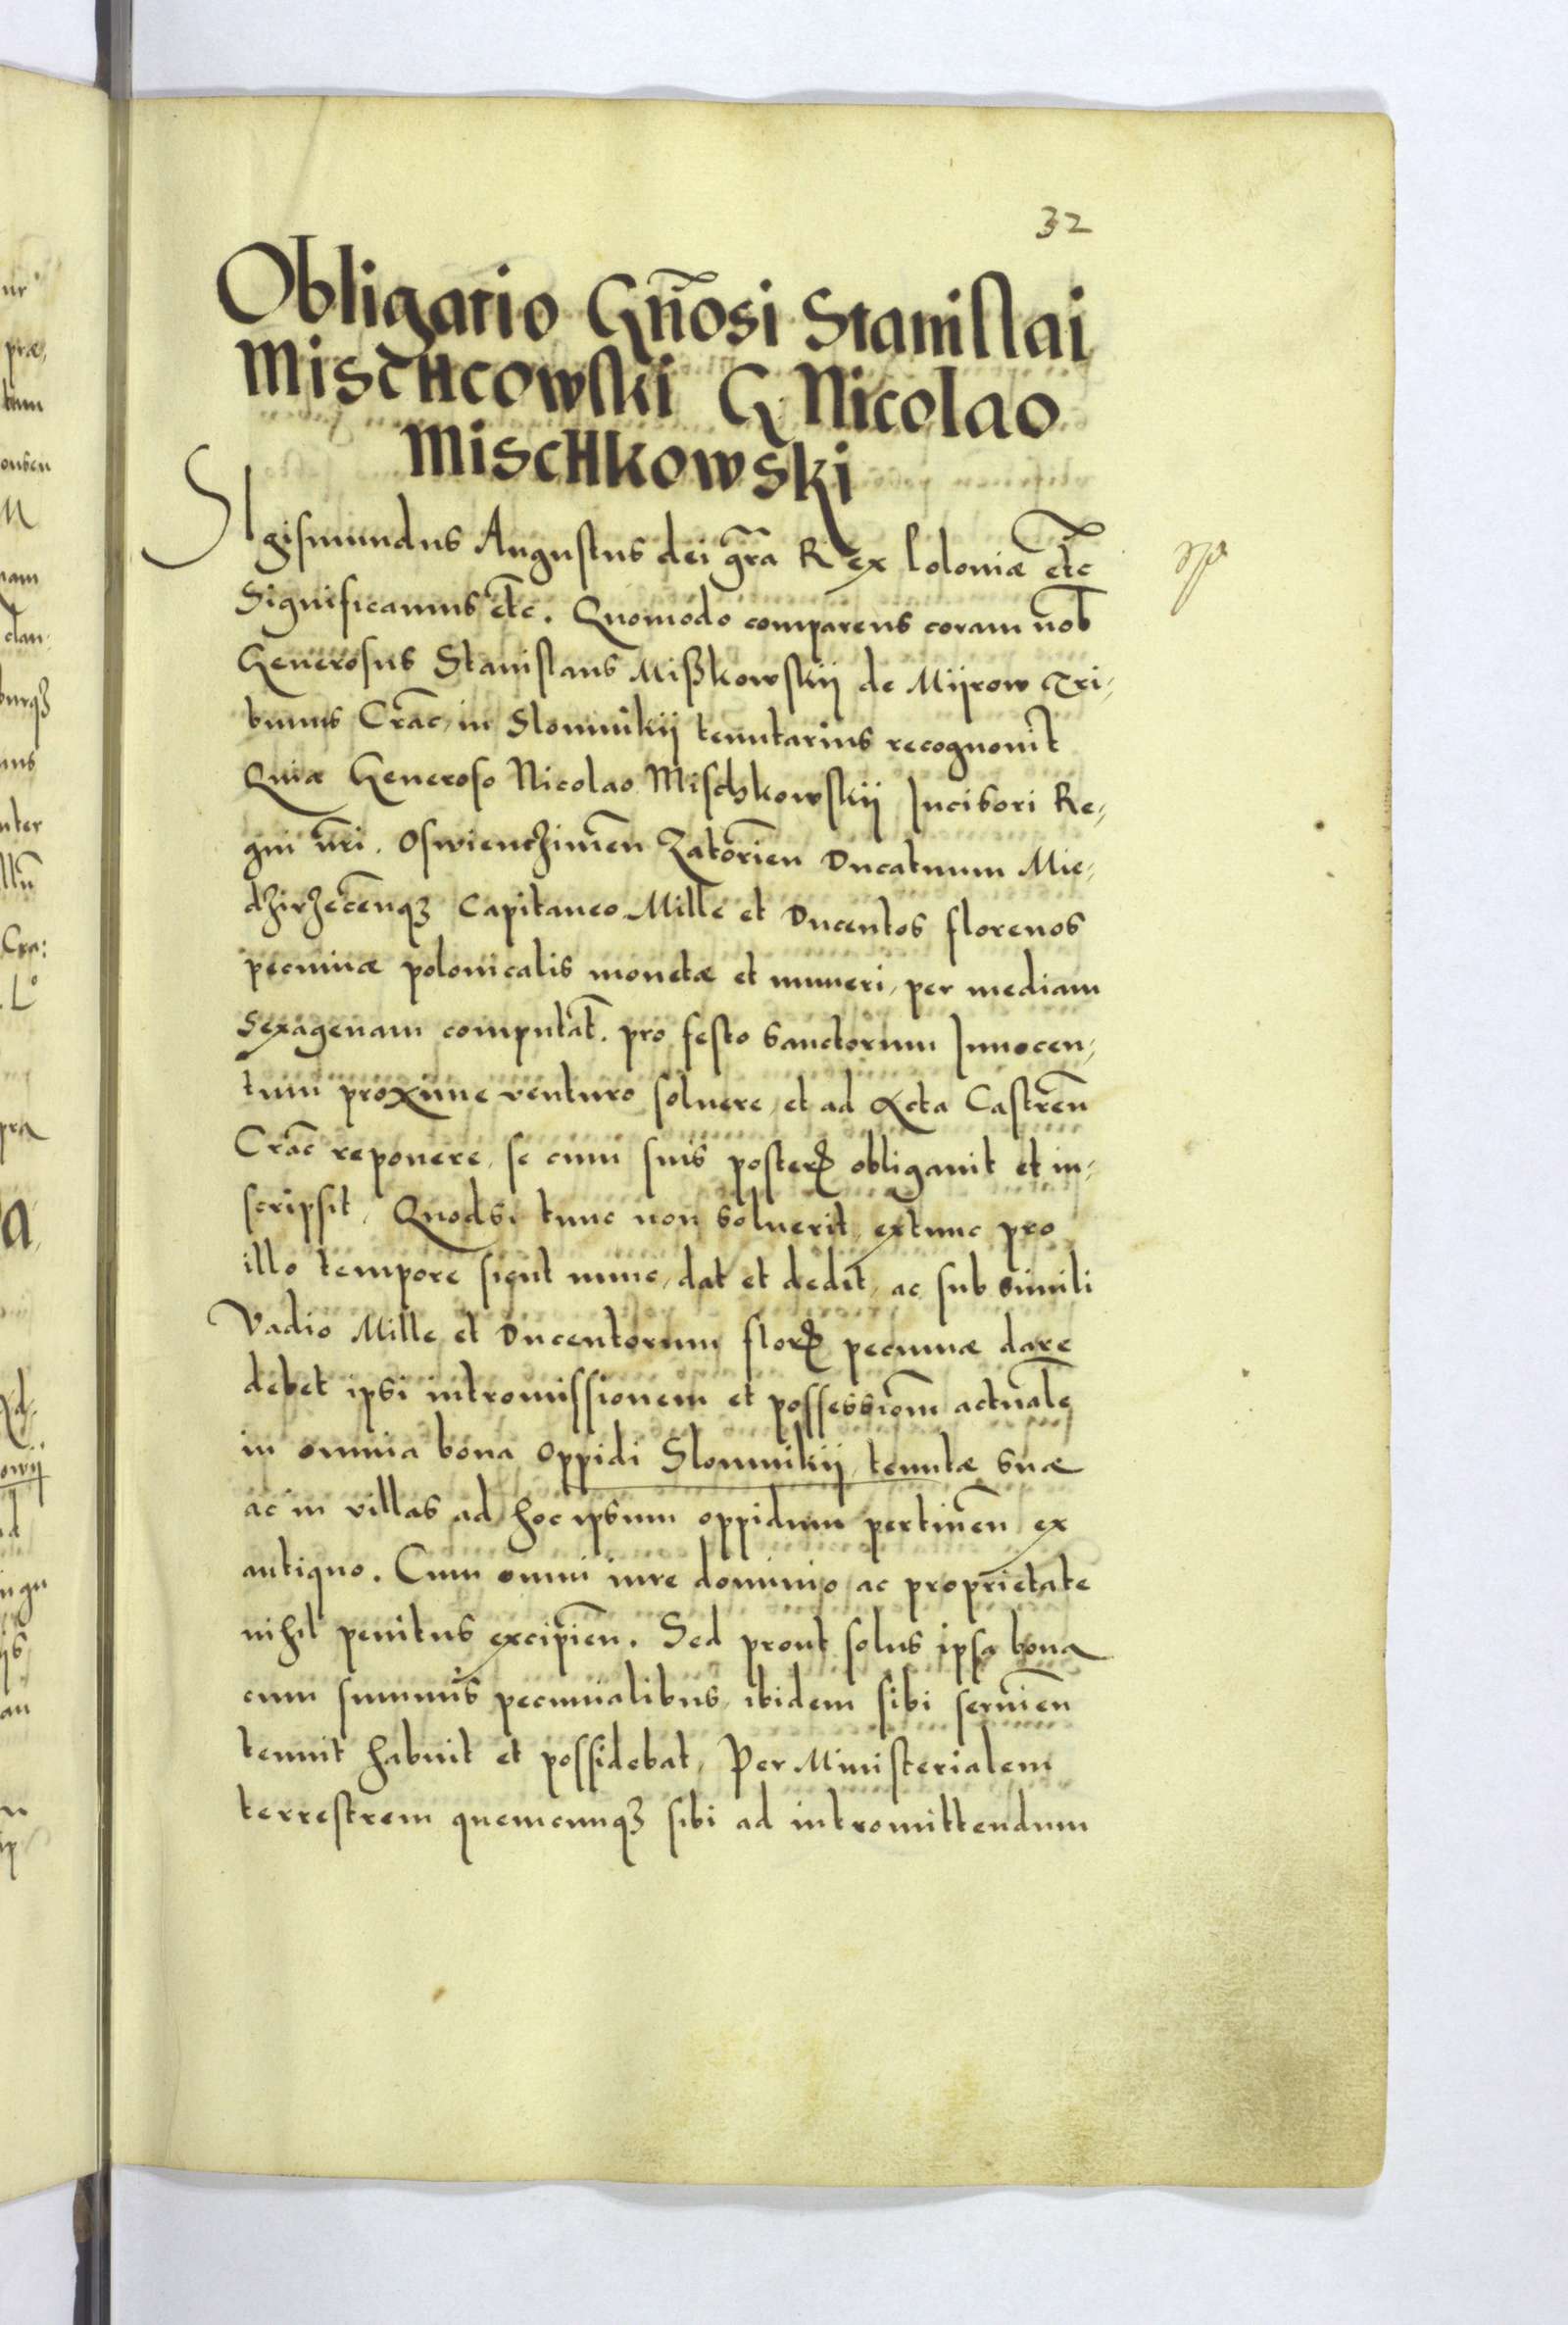 32
Obligatio Gñosi Stanislai
Mischcowski G Nicolao
Mischkowski
SIgismundus Augustus dei gr̃a Rex Poloniæ etc̃
Significamus etc̃. Quomodo comparens coram nob̃
Generosus Stanislaus Mißkowskij de Mijrow Tri-
bunus Crac̃, in Slomnikij tenutarius recognouit
Quia Generoso Nicolao Mischkowskij Incisori Re-
gni nr̃i. Oswienczimeñ Zatorieñ Ducatuum Mie-
dzirzeceñqз Capitaneo Mille et Ducentos florenos
pecuniæ polonicalis monetæ et numeri, per mediam
sexagenam computat̃. pro festo sanctorum Innocen-
tum proxime venturo soluere, et ad Acta Castreñ
Crac̃ reponere, se cum suis posterꝭ obligauit et in-
scripsit, Quodsi tunc non soluerit, extunc pro
illo tempore sicut nunc, dat et dedit, ac sub simili
Vadio Mille et Ducentorum florꝭ pecuniæ dare
debet ipsi intromissionem et possessiom̃ actualẽ
in omnia bona oppidi Slomnikij, tenutæ suæ
ac in villas ad hoc ipsum oppidum pertineñ ex
antiquo. Cum omni iure dominio ac proprietate
nihil penitus excipieñ. Sed prout solus ipsa bona
cum summis pecunialibus, ibidem sibi seruieñ
tenuit habuit et possidebat, Per Ministerialem
terrestrem quemcunqз sibi ad intromittendum